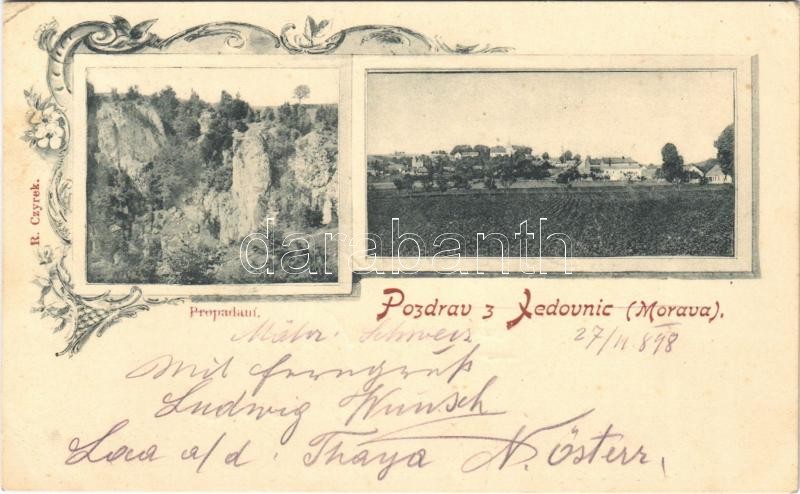 R. Czyrek.
darabanth
Propadaní.
Pozdrav z Jedovnic (Morava).
Mähr. Schweiz
27/II 898
Mit Ferngruß
Ludwig Wunsch
Laa a/d. Thaya N. Österr.